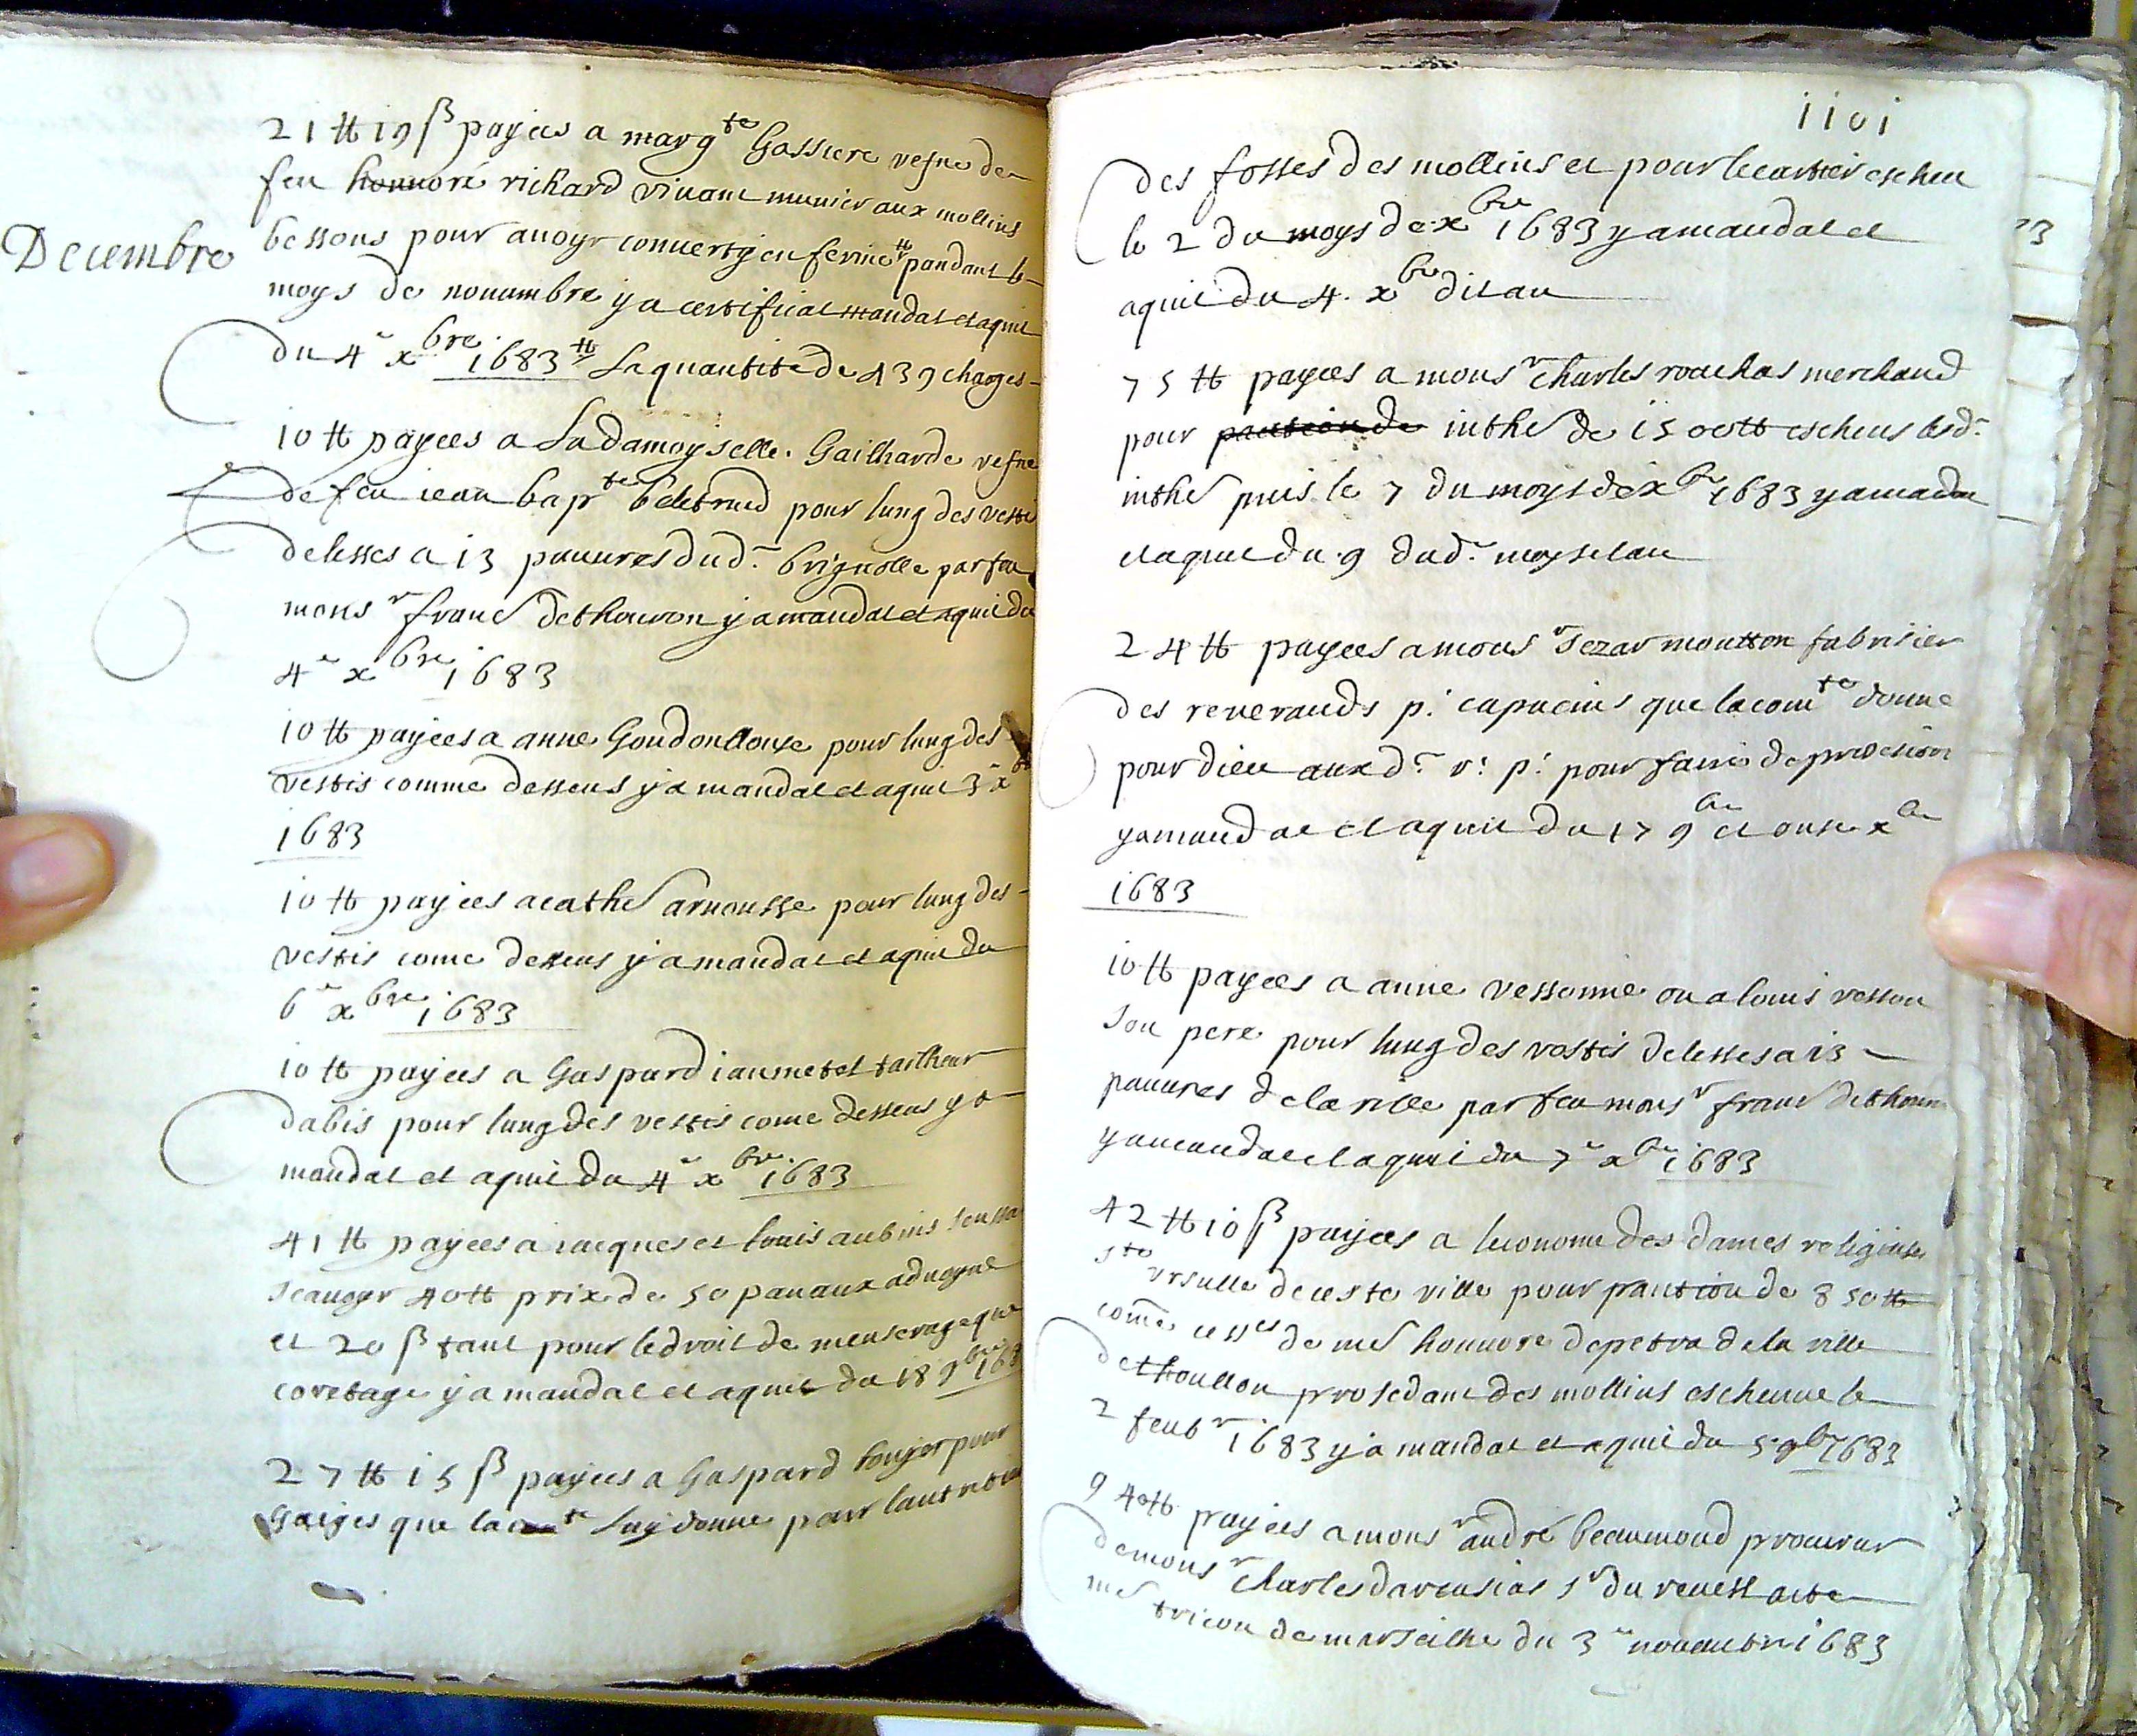 21 ₶ 19 ß payées a marg.te Gassiere vefve de
feu honnoré richard vivant munier aux mollins
bessons pour avoyr converty en ferine pandant le
Decembre
moys de novambre y a certificat mandat et aquit
du 4e xbre 1683 la quantite de 439 charges
10 ₶ payées a la damoyselle Gailharde vefve
de feu iean bap.te beletrud pour lung des vestis
delesses a 13 pauvres dud. brignolle par feu
mons.r franc.s dethouron y a mandat et aquit du
4e xbre 1683
10 ₶ payées a anne Goudonllouse pour lung des
vestis comme dessus y a mandat et aquit 3e xbre
1683
10 ₶ payées a cathe arnousse pour lung des
vestis come dessus y a mandat et aquit du
6e xbre 1683
10 ₶ payées a Gaspard iaumetel tailheur
dabis pour lung des vestis come dessus y a
mandat et aquit du 4e xbre 1683
41 ₶ payées a iacques et louis aubins
scavoyr 40 ₶ prix de 50 panaux advoyne
et 20 ß tant pour le droit de mensurage que
coretage y a mandat et aquit du 18 9bre 1683
27 ₶ 15 ß payées a Gaspard pour
gaiges que la com.te luy donne pour lantretien
1101
des fosses des mollins et pour le cartier escheu
le 2 du moys de xbre 1683 y a mandat et
aquit du 4. xbre dit an
75 ₶ payées a mons.r Charles rouchas merchand
pour inthe de 1500 ₶ escheus lesd.
inthe puis le 7 du moys de xbre 1683 y a mandat
et aquit du 9 dud. moys et an
24 ₶ payées a mons.r sezar moutton fabrisier
des reverands p: capucins que la com.te donne
pour dieu aux d. r: p: pour faire de provesion
y a mandat et aquit du 17 9bre et onse xbre
1683
10 ₶ payées a anne vessonne ou a louis vesson
son pere pour lung des vestis delesses a 13
pauvres de la ville par feu mons.r franc.s dethouron
y a mandat et aquit du 7e xbre 1683
42 ₶ 10 ß payées a leconome des dames religieuses
s.te ursulle de ceste ville pour pantion de 850 ₶
come cess.es de me honnore depetra de la ville
dethoullon prosedant des mollins escheue le
2 feub.r 1683 y a mandat et aquit du 5 9bre 1683
940 ₶ payées a mons.r andré beaumond procureur
de mons.r Charles darcusias s.r du revest acte
me tricon de marseilhe du 3e novambre 1683